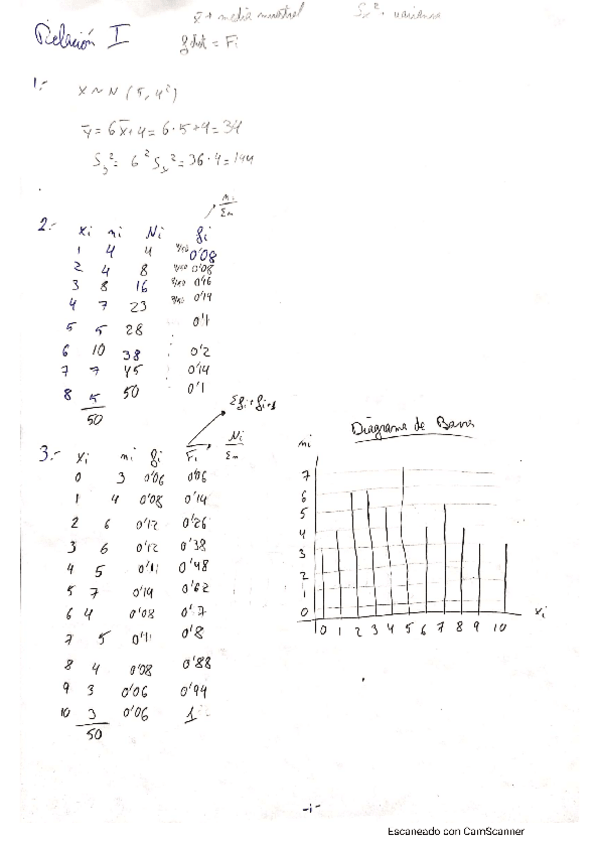 x̄ → media muestral    Sx² = varianza
Relación I
g dist = Fi
1.-
x ~ N (5, 4²)
ȳ = 6x̄ + 4 = 6·5+4 = 34
Sy² = 6² Sx² = 36·4 = 144
ni
Σn
2.-  xi  ni  Ni  fi
1  4  4  4/50  0'08
2  4  8  4/50  0'08
3  8  16  8/50  0'16
4  7  23  7/50  0'14
5  5  28  0'1
6  10  38  0'2
7  7  45  0'14
8  5  50  0'1
50
Σfi + fi+1
Ni
Σn
3.-  xi  ni  fi  Fi
0  3  0'06  0'06
1  4  0'08  0'14
2  6  0'12  0'26
3  6  0'12  0'38
4  5  0'1  0'48
5  7  0'14  0'62
6  4  0'08  0'7
7  5  0'1  0'8
8  4  0'08  0'88
9  3  0'06  0'94
10  3  0'06  1
50
Diagrama de Barras
ni
7
6
5
4
3
2
1
0
0 1 2 3 4 5 6 7 8 9 10  xi
-1-
Escaneado con CamScanner